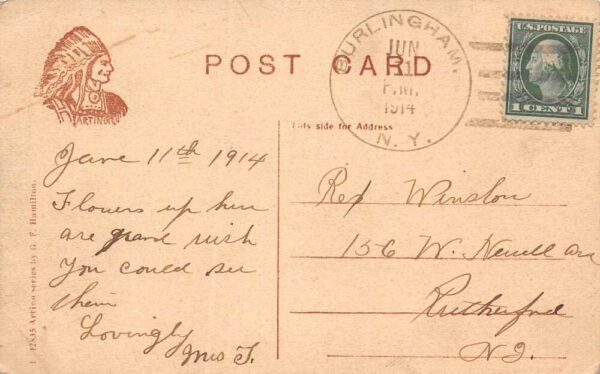 POST CARD
BURLINGHAM.
JUN
11
P.M.
1914
N. Y.
U.S. POSTAGE
1 CENT 1
ARTINO
This side for Address
June 11th 1914
Flowers up here
are grand wish
You could see
them
Lovingly
Mrs T.
Rex Winslow
156 W. Newell Ave
Rutherford
N.J.
12835 Artino series by G. F. Hamilton.